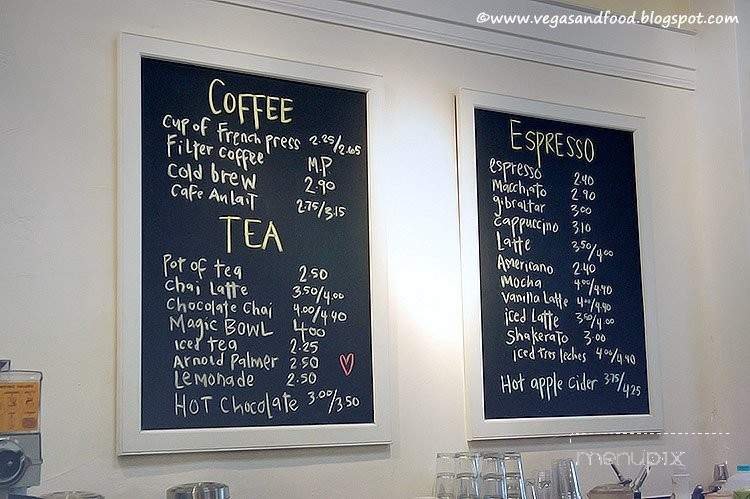 ©www.vegasandfood.blogspot.com
COFFEE
Cup of French press 2.25/2.65
Filter coffee M.P
Cold brew 2.90
Cafe Au lait 2.75/3.15
TEA
Pot of tea 2.50
Chai Latte 3.50/4.00
Chocolate Chai 4.00/4.40
Magic BOWL 4.00
iced tea 2.25
Arnold Palmer 2.50
Lemonade 2.50
HOT Chocolate 3.00/3.50
ESPRESSO
espresso 2.40
Macchiato 2.90
gibraltar 3.00
cappuccino 3.10
Latte 3.50/4.00
Americano 2.40
Mocha 4.00/4.40
Vanilla Latte 4.00/4.40
iced Latte 3.50/4.00
Shakerato 3.00
iced tres leches 4.00/4.40
Hot apple cider 3.75/4.25
menupix